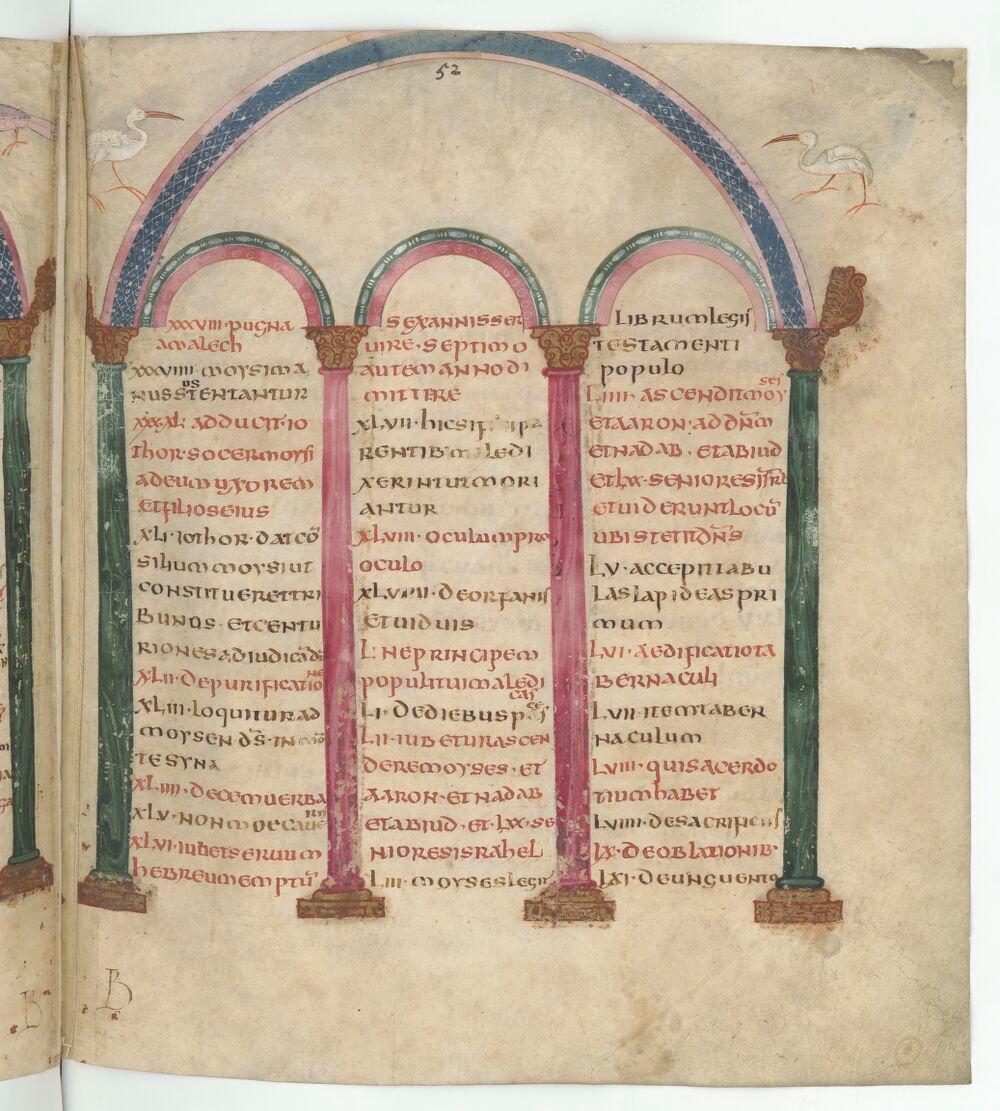 52
xxxviii· pugna
amalech
xxxviiii· moysi ma
nus sustentantur
xl· adducit· io
thor· socer moysi
ad eum uxorem
et filios eius
xli· iothor· dat cō
silium moysi ut
constitueret tri
bunos· et centu
riones ad iudicād
xlii· de purificatione
xliii· loquitur ad
moysen d̄s· in
te syna
xliiii· decem uerba
xlv· non moecaueris
xlvi· iubet seruum
hebreum emptū
sex annis ser
uire· septimo
autem anno di
mittere
xlvii· hic si pa
rentib maledi
xerint ut mori
antur
xlviii· oculum pro
oculo
xlviiii· de orfanis
et uiduis
l· ne principem
populi tui maledicas
li· de diebus
lii· iubetur ascen
dere moyses· et
aaron· et nadab
et abiud· et· lxx· se
niores israhel
liii· moyses legit
librum legis
testamenti
populo
liiii· ascendit moyses
et aaron· ad dn̄m
et nadab· et abiud
et lxx· seniores isrl
et uiderunt locū
ubi stetit dn̄s
lv· accepit tabu
las lapideas pri
mum
lvi· aedificatio ta
bernaculi
lvii· item taber
naculum
lviii· qui sacerdo
tium habet
lviiii· de sacrificiis
lx· de oblationib·
lxi· de unguento
B
B